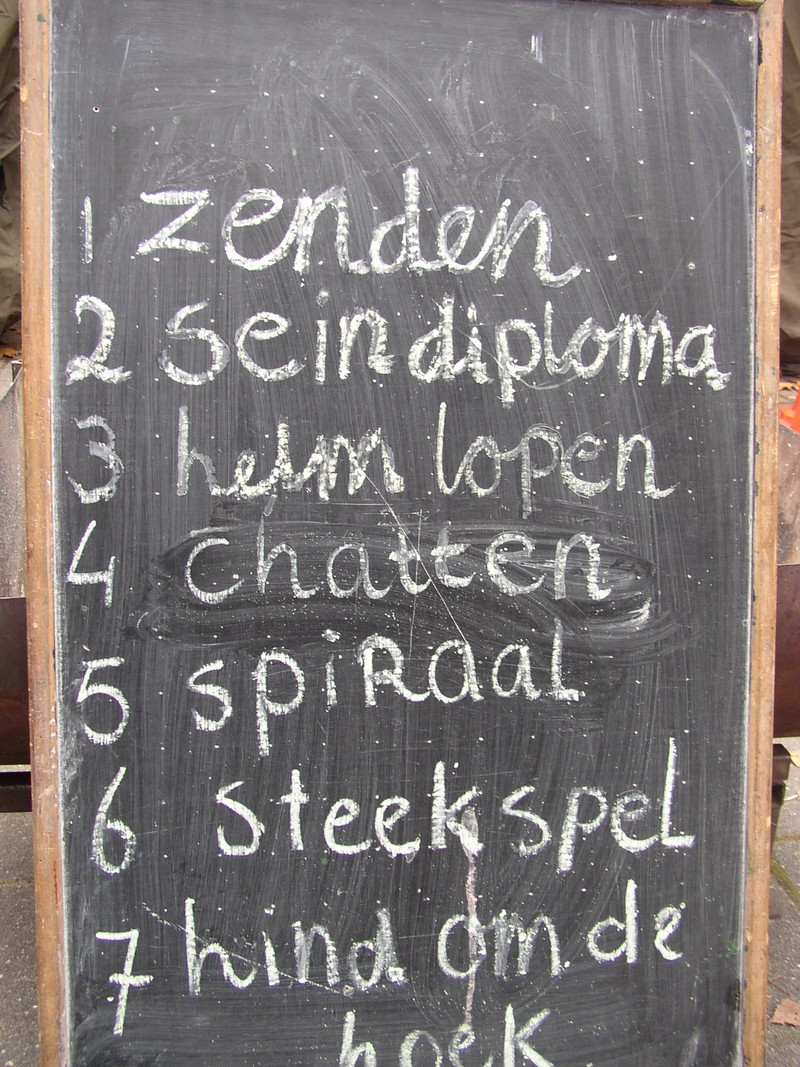 1 zenden
2 Seindiploma
3 helm lopen
4 Chatten
5 spiraal
6 steekspel
7 hind om de
hoek